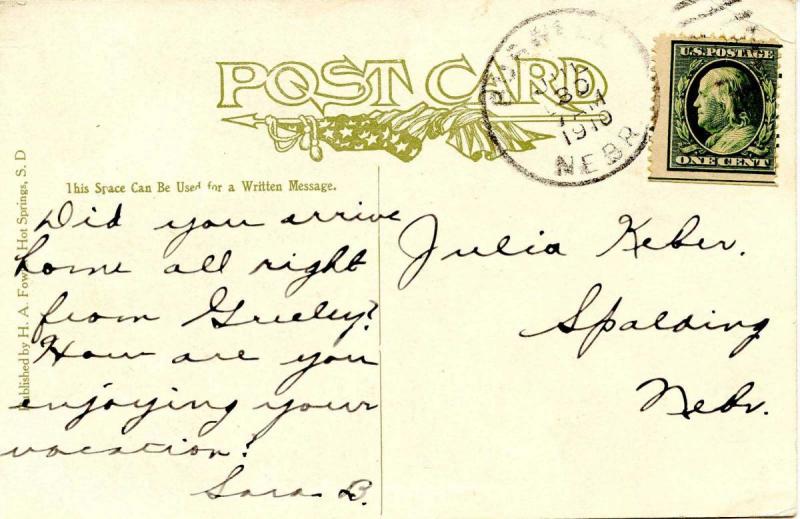 POST CARD
NEBR
30
1910
U.S. POSTAGE
ONE CENT
This Space Can Be Used for a Written Message.
Published by H. A. Hot Springs, S. D
Did you arrive
home all right
from Greeley?
How are you
enjoying your
vacation?
Sara B.
Julia Keber.
Spalding
Nebr.